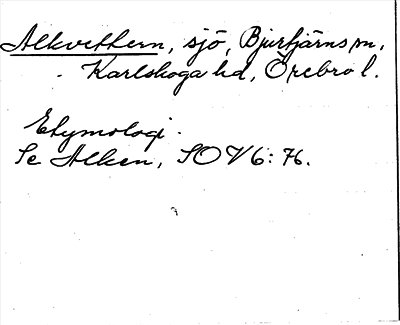 Alkvettern, sjö, Bjurtjärns sn,
Karlskoga hd, Örebro l.
Etymologi.
Se Alken, SOV 6: 76.